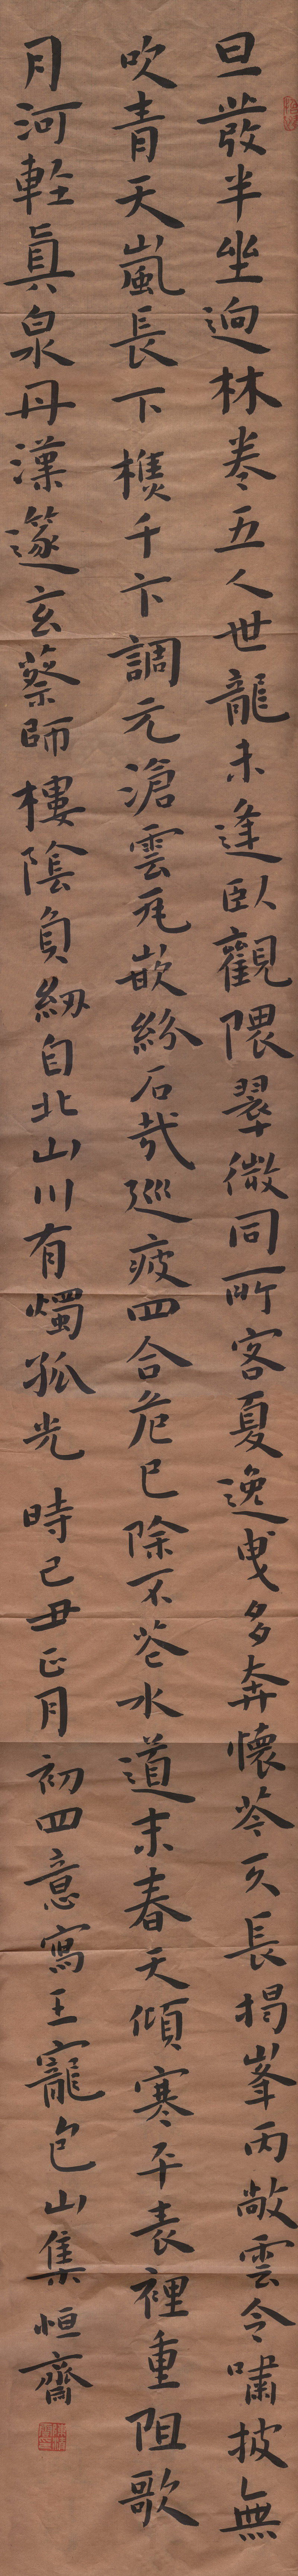 旦發半坐逈林卷五人世龍未逢臥觀隈翠微同所客夏逸曳多奔懷苓又長揭峯丙敞雲令嘯披無
吹青天嵐長下樵千卞調元滄雲禿嵌紛石哉巡疲四合危已除不苍水道末春天傾寒平表裡重阻歌
月河輕真泉丹漢邃玄蔡師樓陰負紉自北山川有燭孤光 時己丑正月初四意寫王寵包山集恒齋